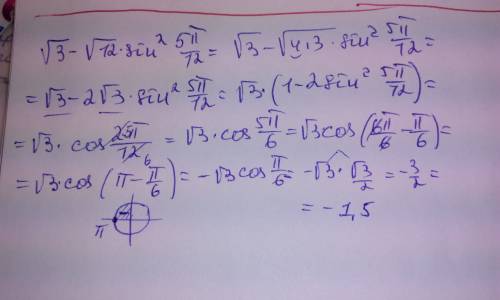 √3 − √12 · sin² 5π/12 = √3 − √(4·3) · sin² 5π/12 =
= √3 − 2√3 · sin² 5π/12 = √3 · (1 − 2sin² 5π/12) =
= √3 · cos 2·5π/12 6 = √3 · cos 5π/6 = √3 cos (6π/6 − π/6) =
= √3 · cos (π − π/6) = −√3 cos π/6 = −√3 · √3/2 = −3/2 =
= −1,5
π −